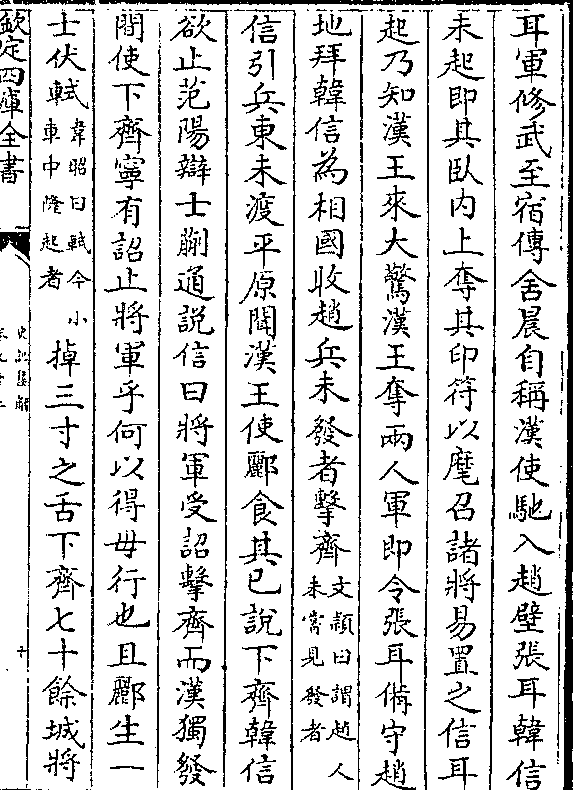 耳軍修武至宿傳舍晨自稱漢使馳入趙壁張耳韓信
未起即其臥内上奪其印符以麾召諸將易置之信耳
起乃知漢王來大驚漢王奪兩人軍即令張耳備守趙
地拜韓信為相國收趙兵未發者擊齊文頴曰謂趙人未嘗見發者
信引兵東未渡平原聞漢王使酈食其已說下齊韓信
欲止范陽辯士蒯通說信曰將軍受詔擊齊而漢獨發
間使下齊寧有詔止將軍乎何以得毋行也且酈生一
士伏軾韋昭曰軾今小車中隆起者掉三寸之舌下齊七十餘城將
欽定四庫全書